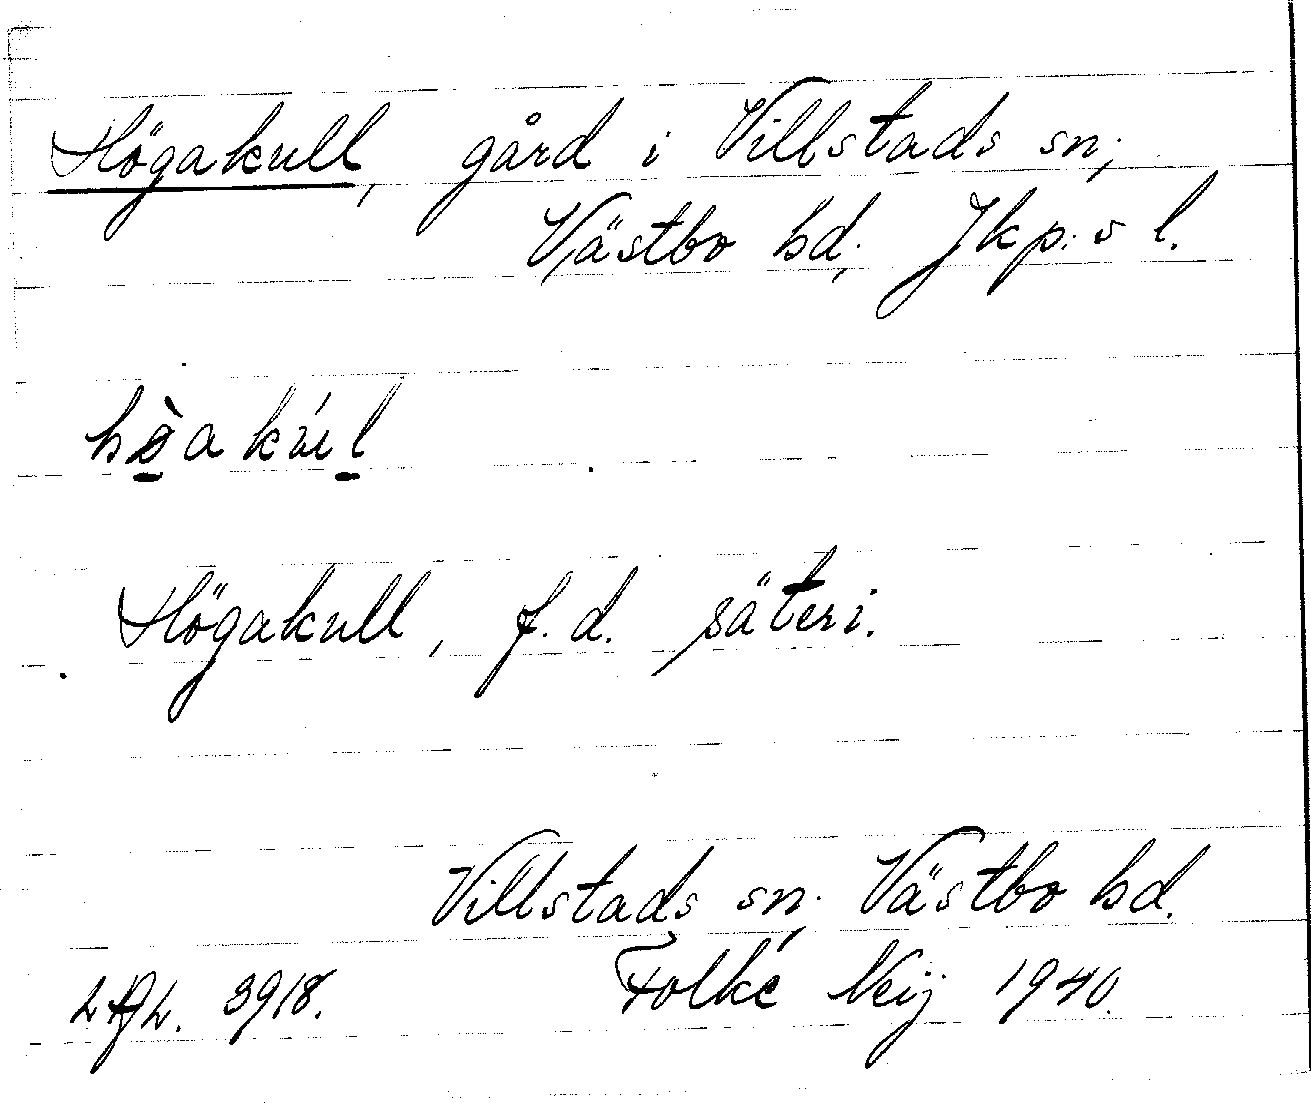 Högakull, gård i Villstads sn;
Västbo hd; Jkp:s l.
hö̀a kúl
Högakull, f. d. säteri.
Villstads sn, Västbo hd.
LAL. 3918. Folke Neij 1940.